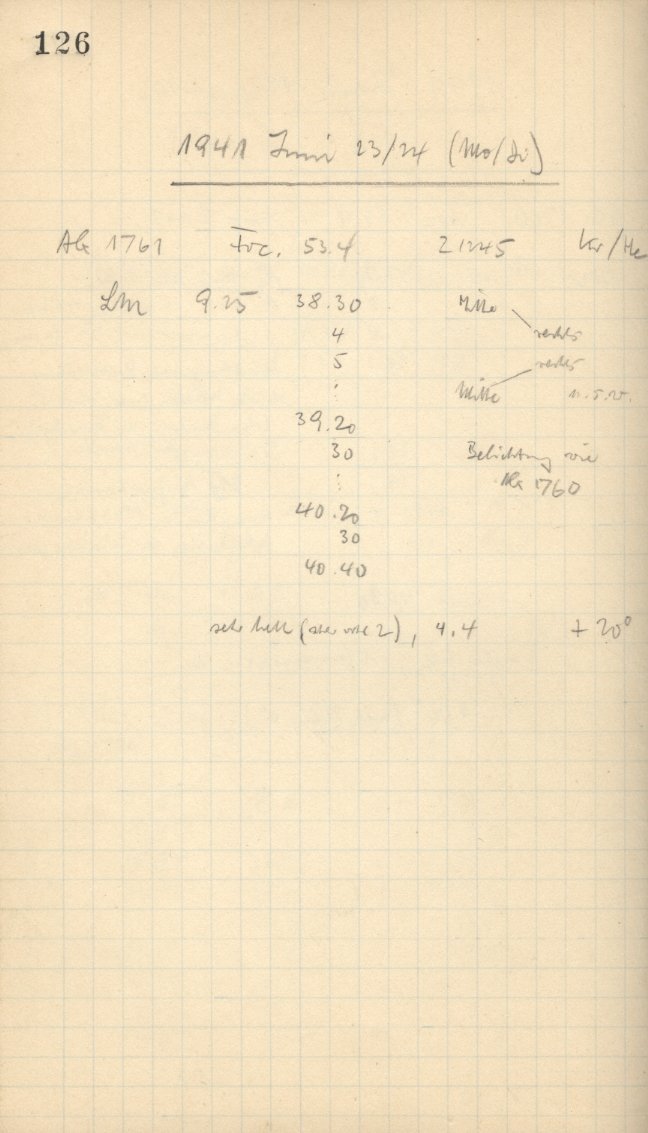 126
1941 Juni 23/24 (Mo/Di)
1761 Foc. 53.4 21245
9.25 38.30 Mitte
4 rechts
5 rechts
⋮ Mitte u.s.w.
39.20
30 Belichtung wie
⋮ 1760
40.20
30
40.40
sehr hell 2), 4.4 + 20°